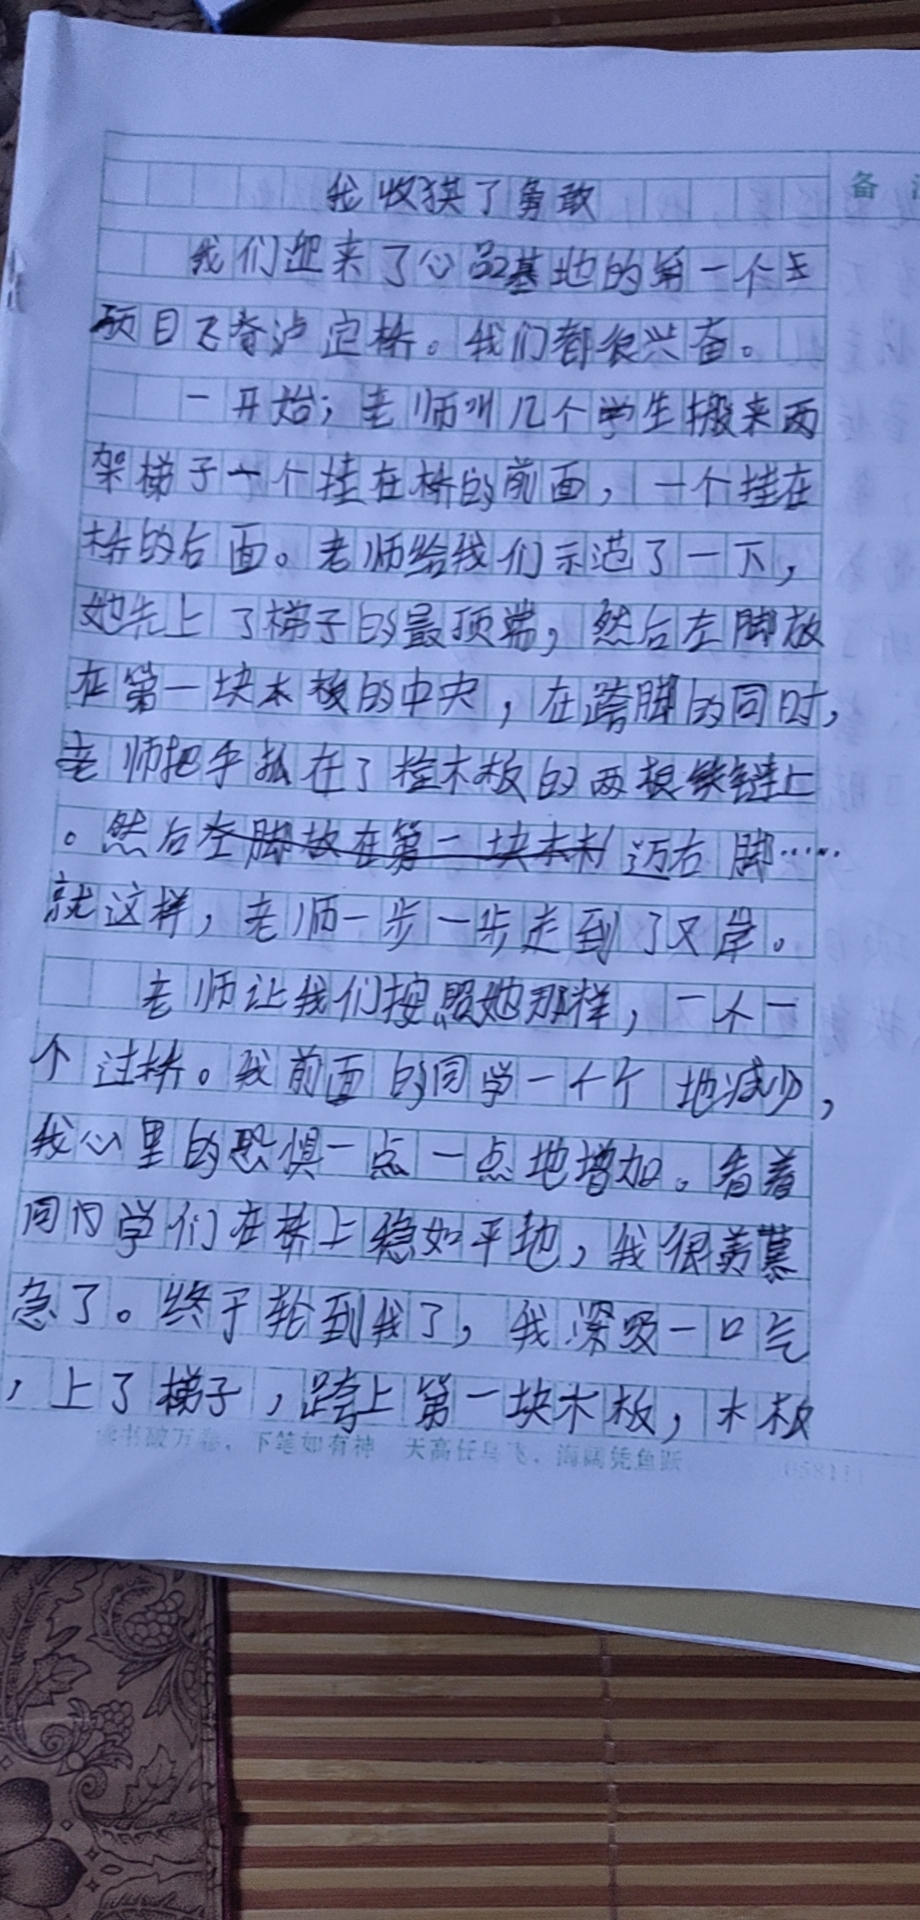 备
我收获了勇敢
我们迎来了心品基地的第一个主
项目飞夺泸定桥。我们都很兴奋。
一开始；老师叫几个学生搬来两
架梯子一个挂在桥的前面，一个挂在
桥的后面。老师给我们示范了一下，
她先上了梯子的最顶端，然后左脚放
在第一块木板的中央，在跨脚的同时，
老师把手抓在了拴木板的两根铁链上
。然后左脚放在第二块木板迈右脚……
就这样，老师一步一步走到了对岸。
老师让我们按照她那样，一个一
个过桥。我前面的同学一个个地减少，
我心里的恐惧一点一点地增加。看着
同学们在桥上稳如平地，我很羡慕
急了。终于轮到我了，我深吸一口气
，上了梯子，跨上第一块木板，木板
读书破万卷，下笔如有神 天高任鸟飞，海阔凭鱼跃